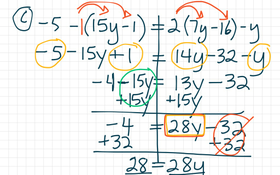 c) -5 -1(15y-1) = 2(7y-16)-y
-5 -15y +1 = 14y -32 -y
-4 -15y = 13y -32
+15y +15y
-4 = 28y -32
+32 +32
28 = 28y